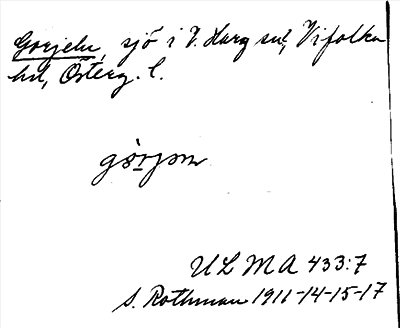 Gorjeln, sjö i V. Harg sn, Vifolka
hd, Österg. l.
görjən
ULMA 433:7
S. Rothman 1911-14-15-17